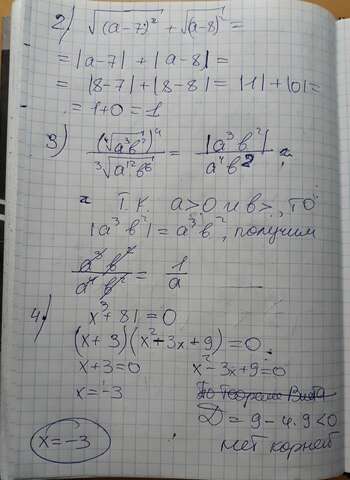 2) √(a-7)² + √(a-8)² =
= |a-7| + |a-8| =
= |8-7| + |8-8| = |1| + |0| =
= 1+0 = 1
3) (⁴√a³b²)⁴ / ³√a¹²b⁶ = |a³b²| / a⁴b² =
= Т.К. a>0 и b>, ТО
|a³b²| = a³b², получим
a³b² / a⁴b² = 1/a
4. x³ + 81 = 0
(x+3)(x²-3x+9) = 0
x+3=0 x²-3x+9=0
x=-3 По теореме Виета
D = 9 - 4·9 < 0
x=-3 нет корней